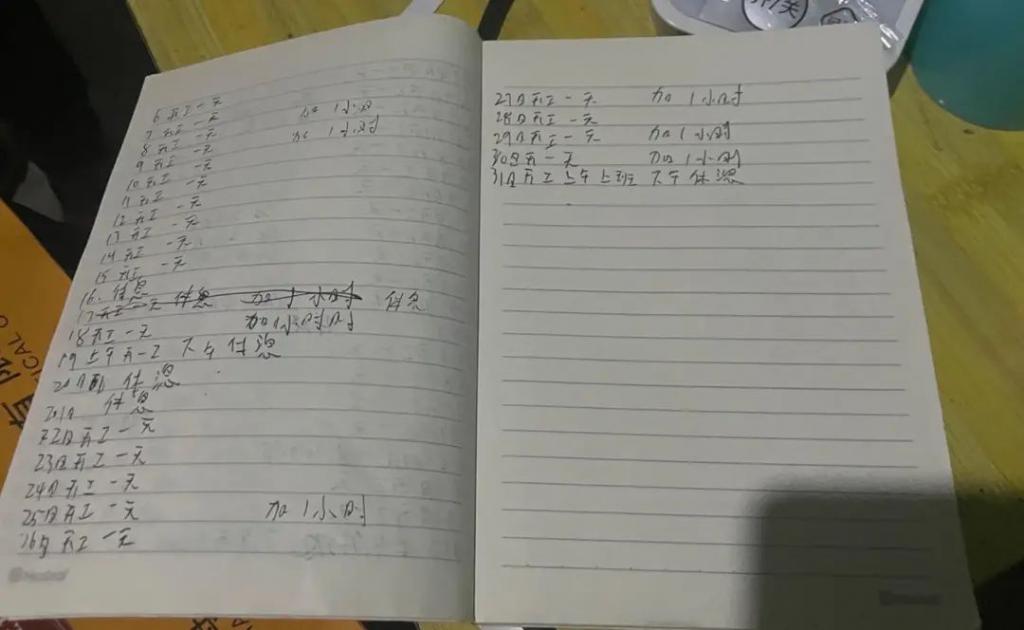 6 开工一天
7 开工一天 加1小时
8 开工一天 加1小时
9 开工一天
10 开工一天
11 开工一天
12 开工一天
13 开工一天
14 开工一天
15 开工一天
16. 休息
17 开工一天 休息 加1小时 休息
18 开工一天 加1小时时
19 上午开工 下午休息
20日 休息
21日 休息
22日开工一天
23日开工一天
24日开工一天
25日开工一天 加1小时
26日开工一天
27日开工一天 加1小时
28日开工一天
29日开工一天 加1小时
30日开一天 加1小时
31日开工上午上班 下午休息